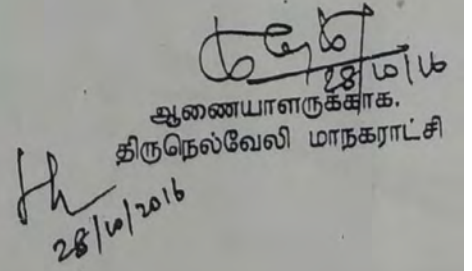 28/10/16
ஆணையாளருக்காக.
திருநெல்வேலி மாநகராட்சி
28/10/2016